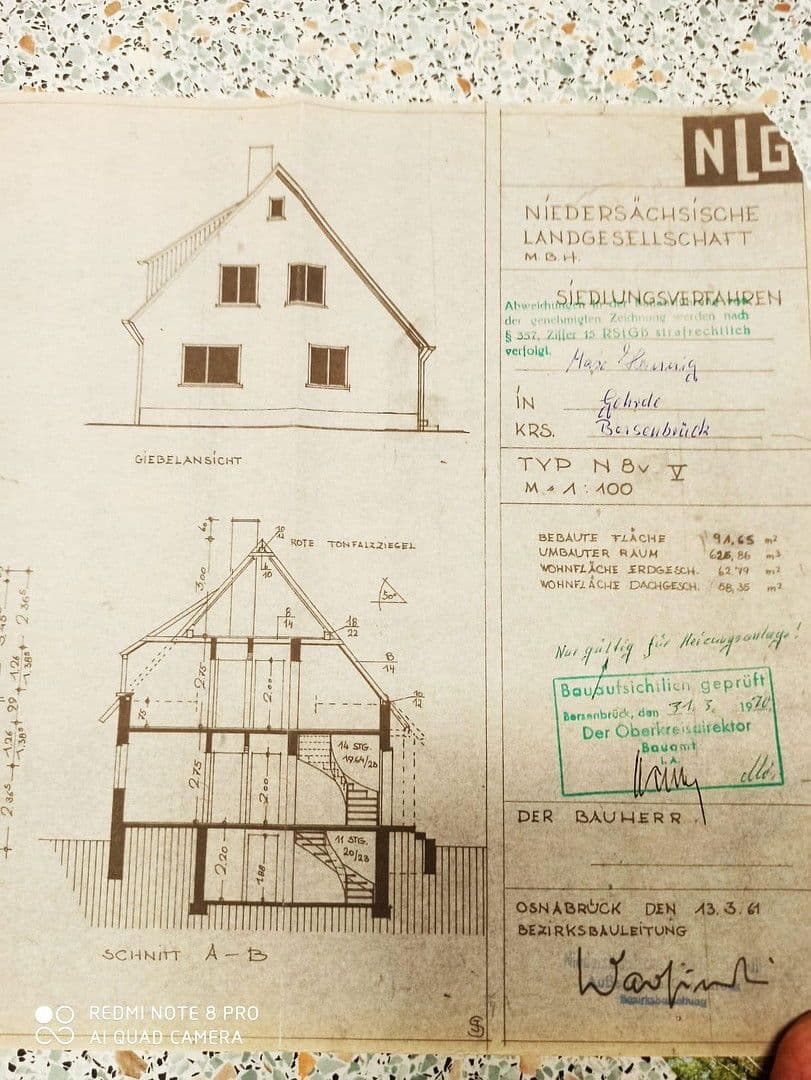 NLG
NIEDERSÄCHSISCHE
LANDGESELLSCHAFT
M.B.H.
SIEDLUNGSVERFAHREN
Abweichungen
der genehmigten Zeichnung werden nach
§ 357, Ziffer 15 RStGB strafrechtlich
verfolgt.
IN Gehrde
KRS. Bersenbrück
TYP N 8v V
M = 1:100
GIEBELANSICHT
BEBAUTE FLÄCHE 91,65 m²
UMBAUTER RAUM 626,86 m³
WOHNFLÄCHE ERDGESCH. 62,79 m²
WOHNFLÄCHE DACHGESCH. 58,35 m²
60
10
12
ROTE TONFALZZIEGEL
10
3,00
50°
8
14
18
22
8
14
2,75
2,00
75
10
12
14 STG.
19,64/28
2,75
2,00
11 STG.
20/28
2,20
1,88
2,36⁵
1,26
1,38⁵
29
1,26
1,38⁵
2,36⁵
Nur gültig für Heizungsanlage!
Bauaufsichtlich geprüft
Bersenbrück, den 31. 3. 1970
Der Oberkreisdirektor
Bauamt
i.A.
DER BAUHERR
OSNABRÜCK DEN 13.3.61
BEZIRKSBAULEITUNG
SCHNITT A-B
REDMI NOTE 8 PRO
AI QUAD CAMERA